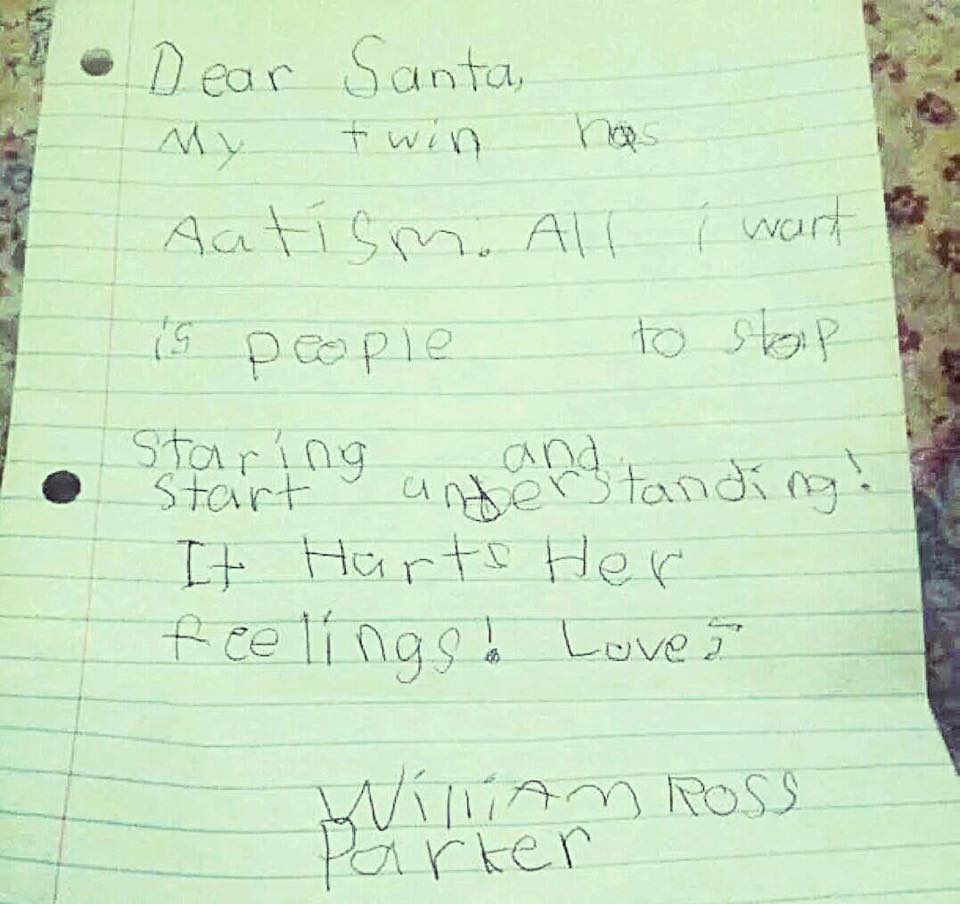 Dear Santa,
My twin has
Aatism. All i want
is people to stop
Staring and
Start understanding!
It Harts Her
feelings! Love,
William Ross
Parker